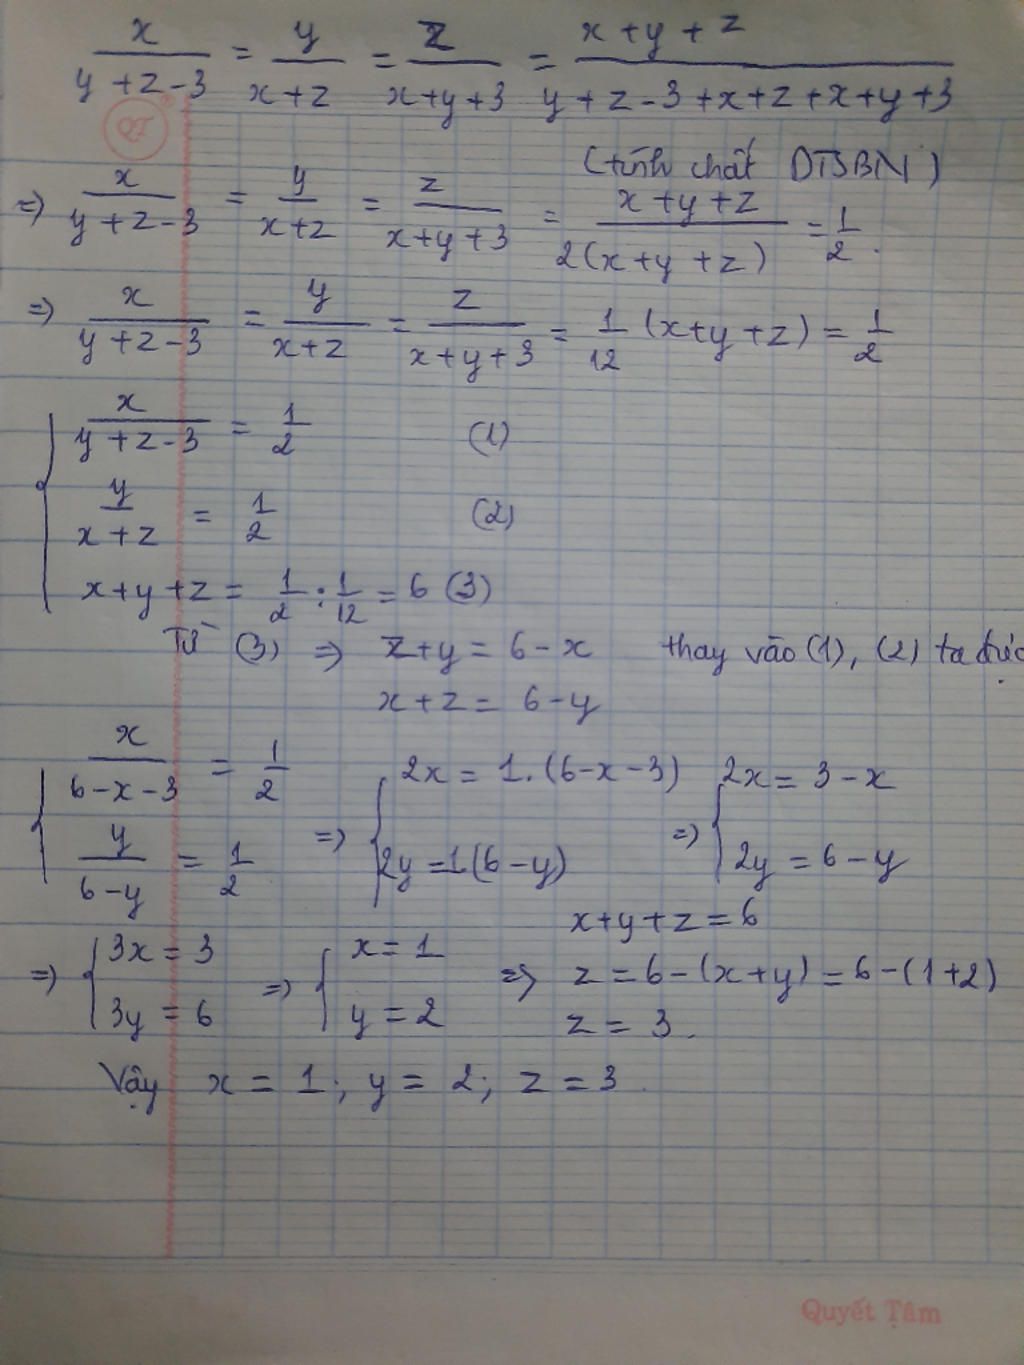 x/(y+z-3) = y/(x+z) = z/(x+y+3) = (x+y+z)/(y+z-3+x+z+x+y+3)
QT
(tính chất DTSBN)
=> x/(y+z-3) = y/(x+z) = z/(x+y+3) = (x+y+z)/(2(x+y+z)) = 1/2.
=> x/(y+z-3) = y/(x+z) = z/(x+y+3) = 1/12 (x+y+z) = 1/2
{ x/(y+z-3) = 1/2 (1)
y/(x+z) = 1/2 (2)
x+y+z = 1/2 : 1/12 = 6 (3)
Từ (3) => z+y = 6-x thay vào (1), (2) ta được
x+z = 6-y
{ x/(6-x-3) = 1/2
y/(6-y) = 1/2
=> { 2x = 1.(6-x-3)
2y = 1(6-y)
=> { 2x = 3-x
2y = 6-y
x+y+z = 6
=> { 3x = 3
3y = 6
=> { x = 1
y = 2
=> z = 6-(x+y) = 6-(1+2)
z = 3.
Vậy x = 1; y = 2; z = 3.
Quyết Tâm